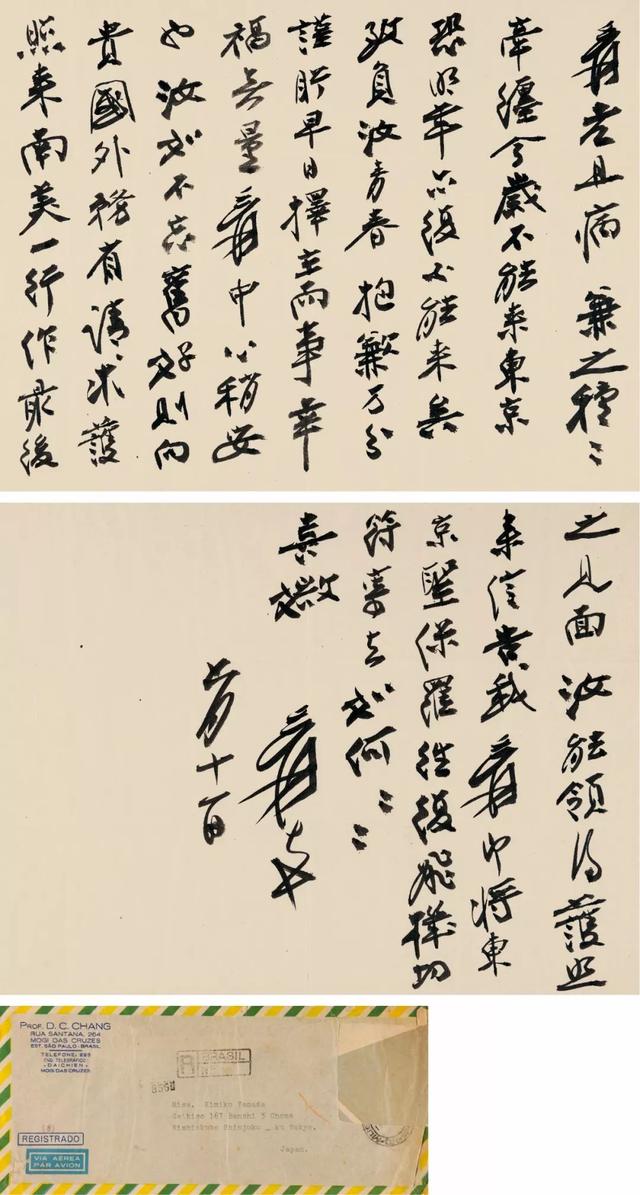 爰老且病 兼之種〻
牽纏今歲不能來東京
恐明年亦復不能來矣
致負汝青春 抱歉万分
謹盼早日擇主而事幸
福無量 爰中心稍安
也汝或不忘舊好則向
貴國外務省請求護
照來南美一行作最後
之見面 汝能領得護照
來信告我 爰即將東
京聖保羅往復飛機切
符寄去 如何〻〻
喜媺
爰
月十一日
PROF. D. C. CHANG
RUA SANTANA, 264
MOGI DAS CRUZES
EST. SÃO PAULO - BRASIL
TELEFONE: 225
END. TELEGRÁFICO:
«DAICHIEN»
MOGI DAS CRUZES
R BRASIL
Miss. Kimiko Yamada
167 Banchi 3 Chome
Nishiokubo Shinjoku _ ku Tokyo.
Japan.
(8)
REGISTRADO
VIA AÉREA
PAR AVION